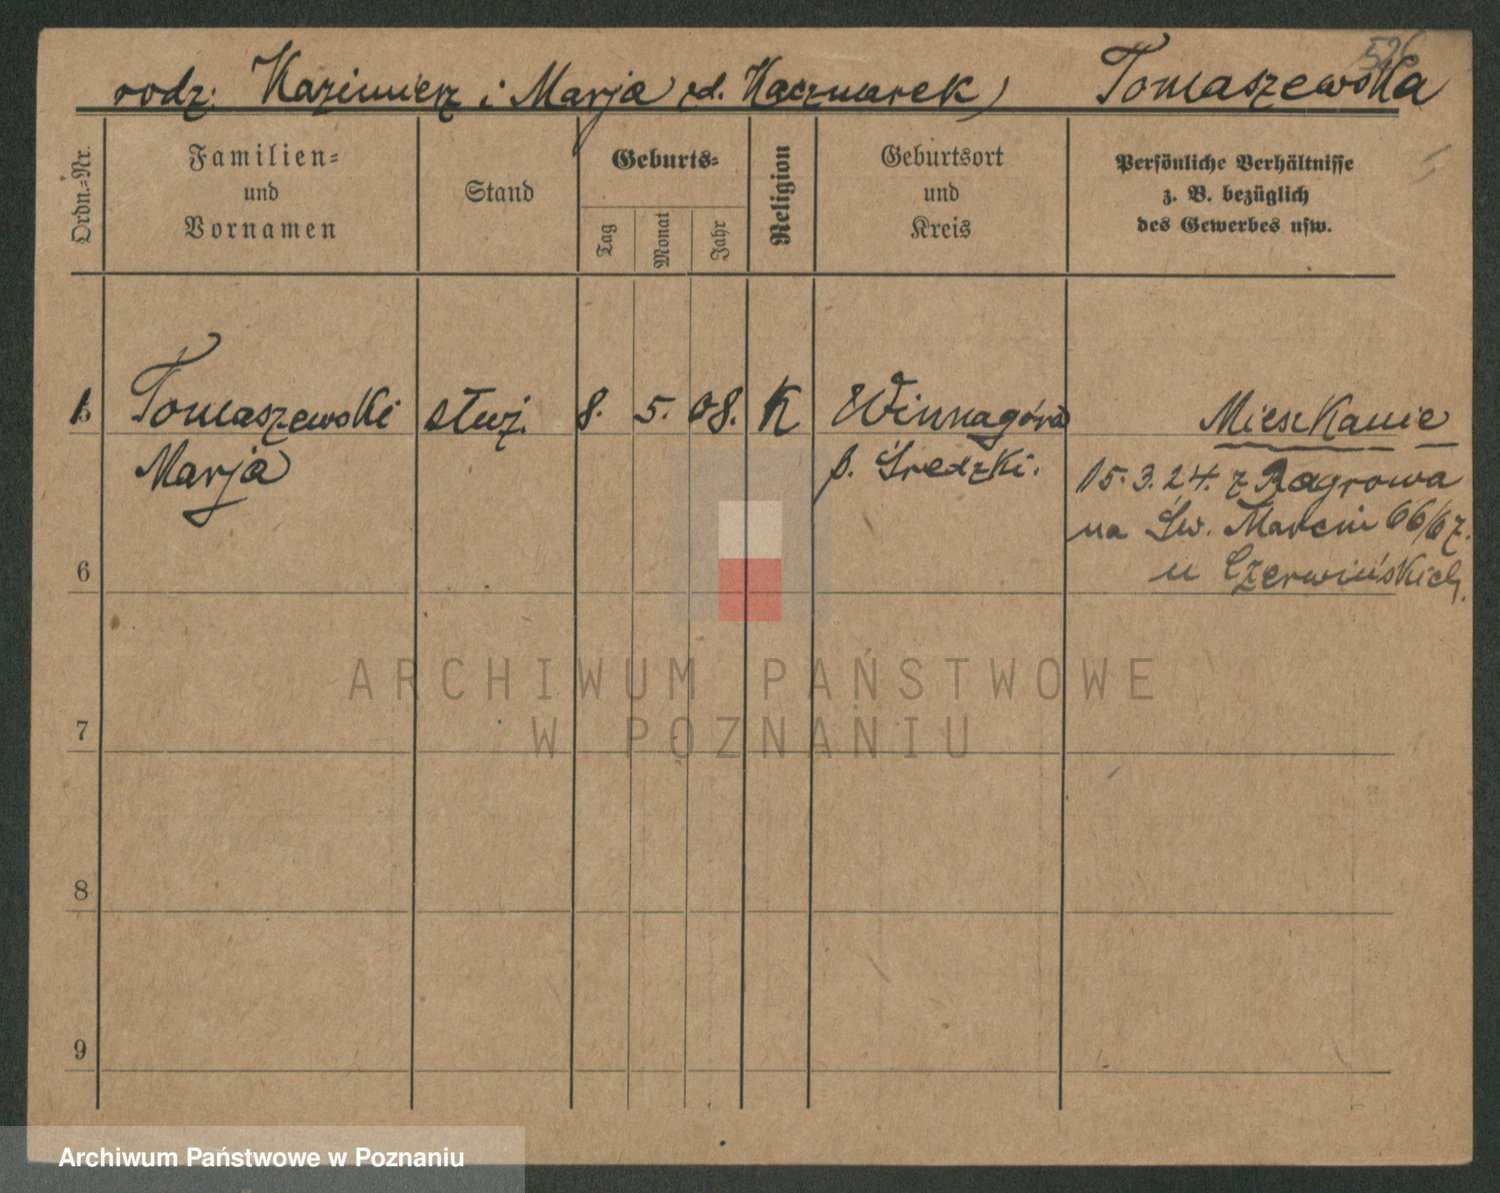 526
rodz: Kazimierz i Marja zd. Kaczmarek) Tomaszewska
Ordn.-Nr.
Familien-
und
Vornamen
Stand
Geburts-
Tag
Monat
Jahr
Religion
Geburtsort
und
Kreis
Persönliche Verhältnisse
z. B. bezüglich
des Gewerbes usw.
Tomaszewski służ. 8. 5. 08. K Winnagóra Mieszkanie
Marja p. Średzki. 15.3.24. z Zagrowa
na Św. Marcin 66/67.
u Czerwińskich.
6
7
8
9
ARCHIWUM PAŃSTWOWE
W POZNANIU
Archiwum Państwowe w Poznaniu